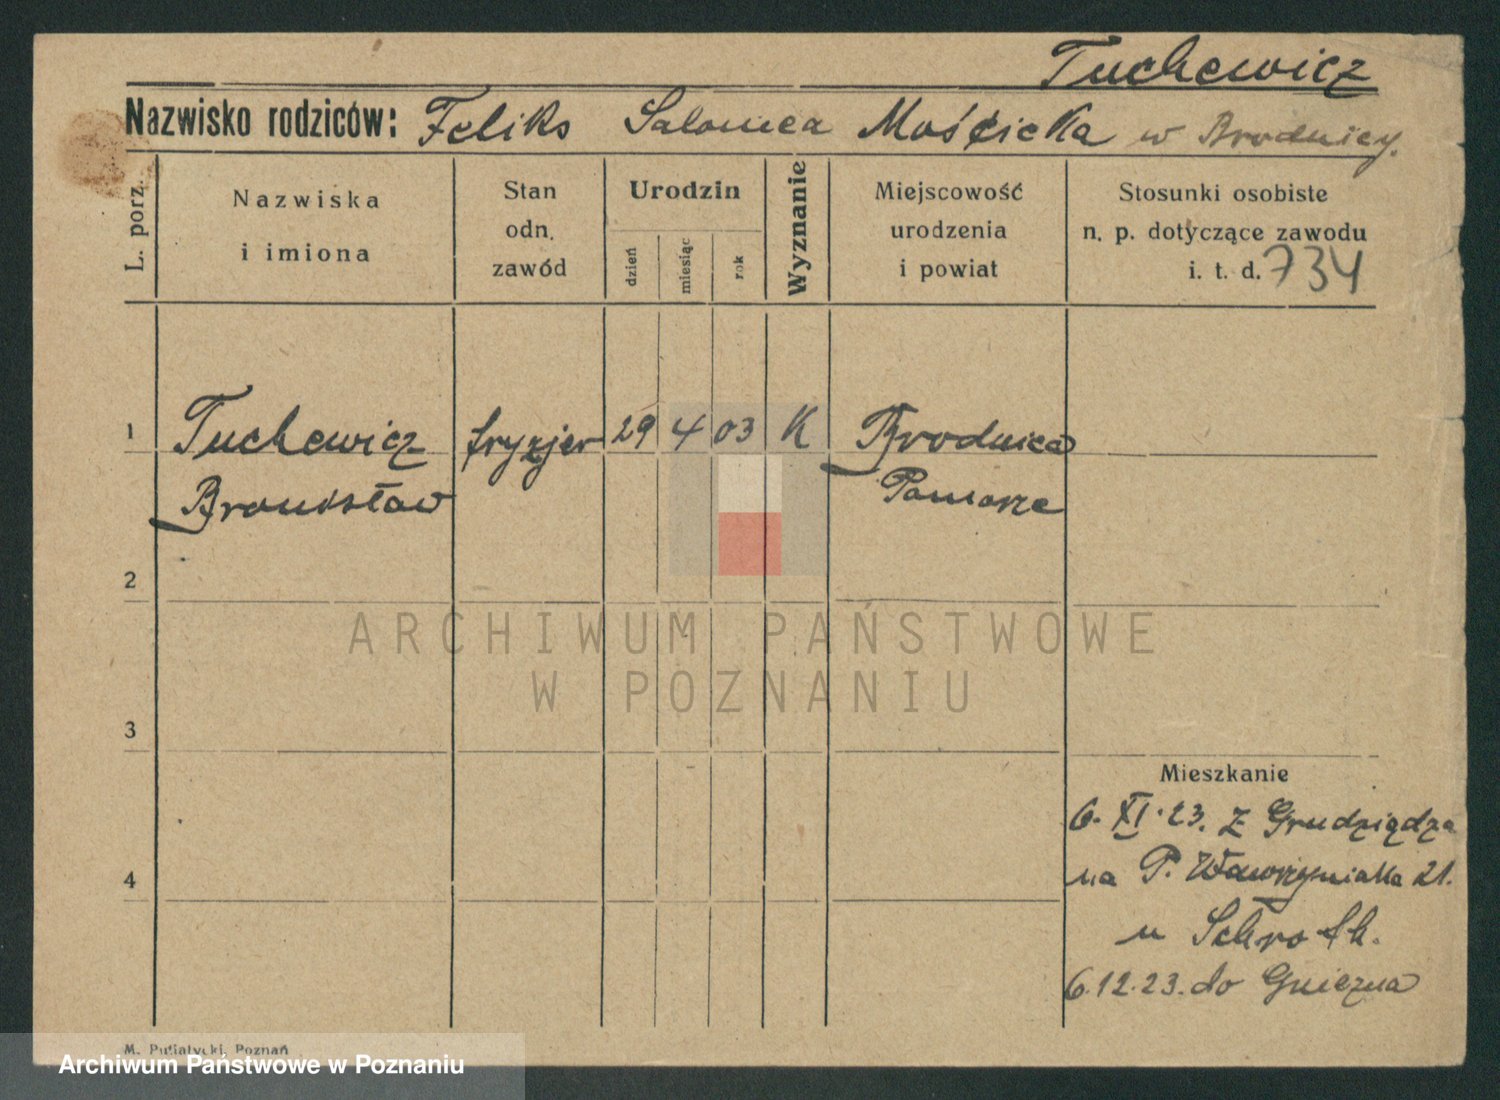 Tuchewicz
Nazwisko rodziców: Feliks Salomea Mościcka w Brodnicy.
L. porz.
Nazwiska
i imiona
Stan
odn.
zawód
Urodzin
dzień
miesiąc
rok
Wyznanie
Miejscowość
urodzenia
i powiat
Stosunki osobiste
n. p. dotyczące zawodu
i. t. d. 734
1 Tuchewicz fryzjer 29 4 03 K Brodnica
Bronisław Pomorze
2
3
4
Mieszkanie
6. XI. 23. z Grudziądza
na P. Wawrzyniaka 21.
u Schroth.
6.12.23. do Gniezna
M. Putiatycki, Poznań
ARCHIWUM PAŃSTWOWE
W POZNANIU
Archiwum Państwowe w Poznaniu